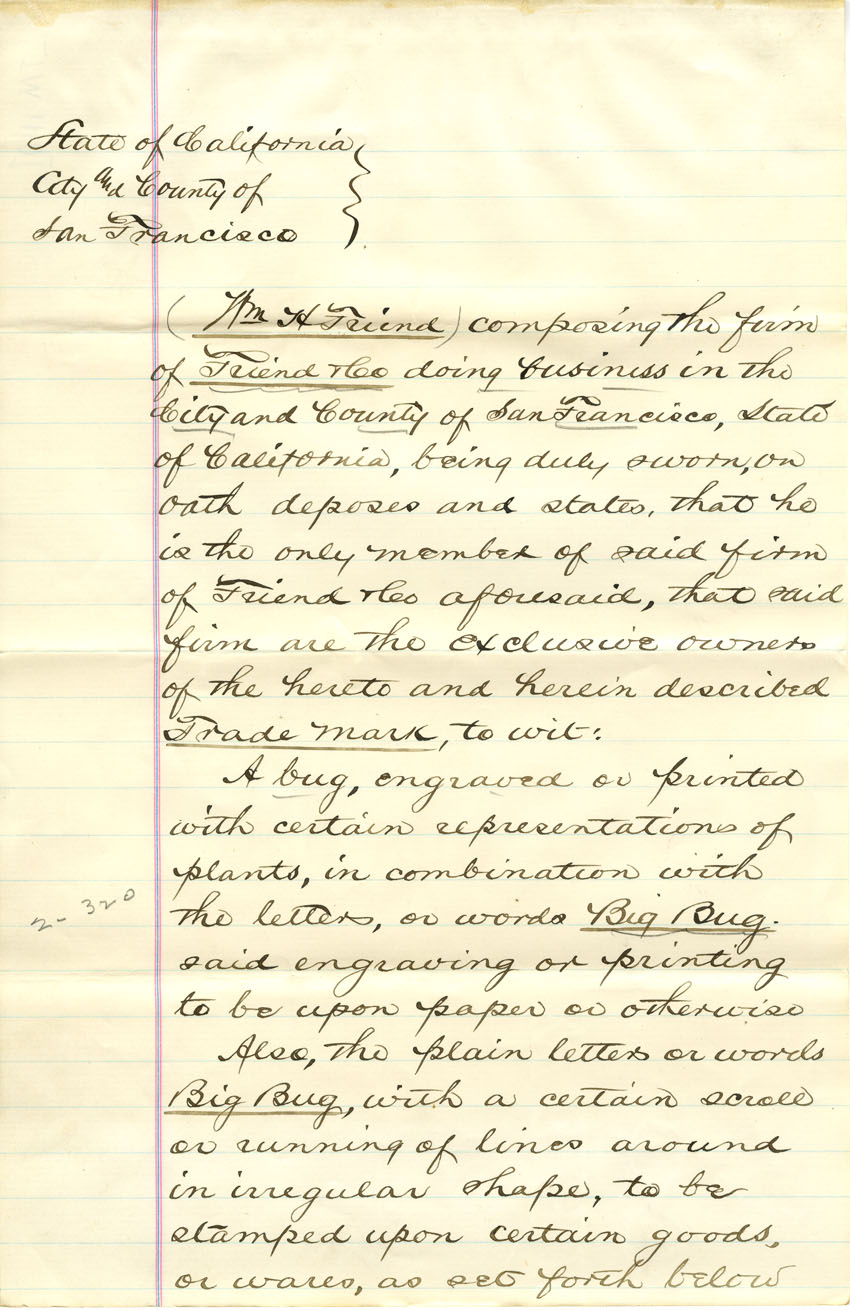 State of California
City and County of
San Francisco
( Wm H Friend ) composing the firm
of Friend & Co doing business in the
City and County of San Francisco, State
of California, being duly sworn, on
oath deposes and states, that he
is the only member of said firm
of Friend & Co aforesaid, that said
firm are the exclusive owners
of the hereto and herein described
Trade Mark, to wit:
A bug, engraved or printed
with certain representations of
plants, in combination with
the letters, or words Big Bug.
said engraving or printing
to be upon paper or otherwise
2-320
Also, the plain letters or words
Big Bug, with a certain scroll
or running of lines around
in irregular shape, to be
stamped upon certain goods,
or wares, as set forth below